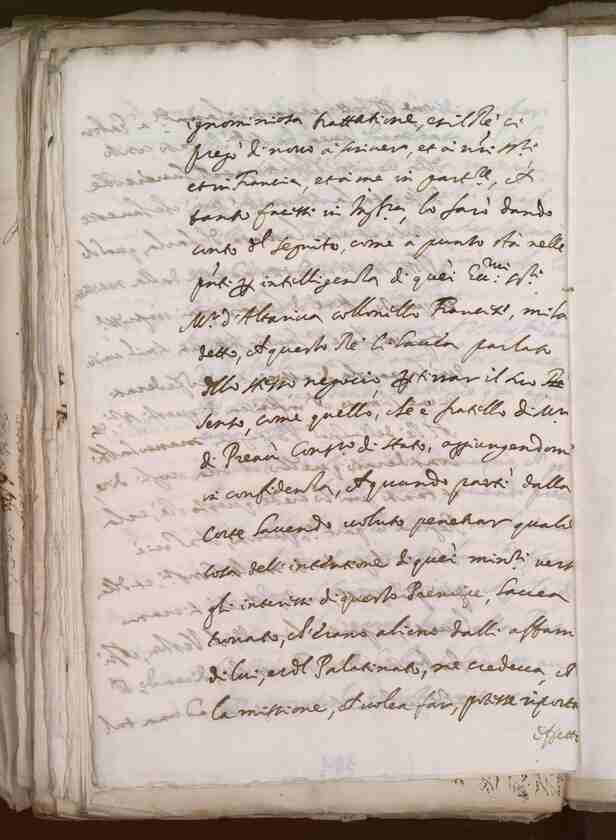 ignominiosa trattatione, et il Rè ci
pregò di novo a scriver, et a
et in Francia, et a me in part.re, ch
tanto facessi in Ing.ra, lo farò dando
conto del seguito, come a punto stà nelle
p'nti intelligenza di quei Ecc.mi
Mr. d'Altariva collonello Francese, mi ha
detto, ch a questo Rè li haveva parlato
dello stesso negocio,
come quello, ch'è fratello di Mr.
di Preaù Cons.ro di Stato, aggiungendomi
in confidenza, ch quando partì dalla
Corte havendo voluto penetrar qual
cosa dell'intentione di quei minri vers
gli interessi di questo Prencipe, havea
trovato, ch'erano alieni dalli affari
di lui, et del Palatinato, ne credeva, ch
la missione, ch volea far, potesse riporta
effetti